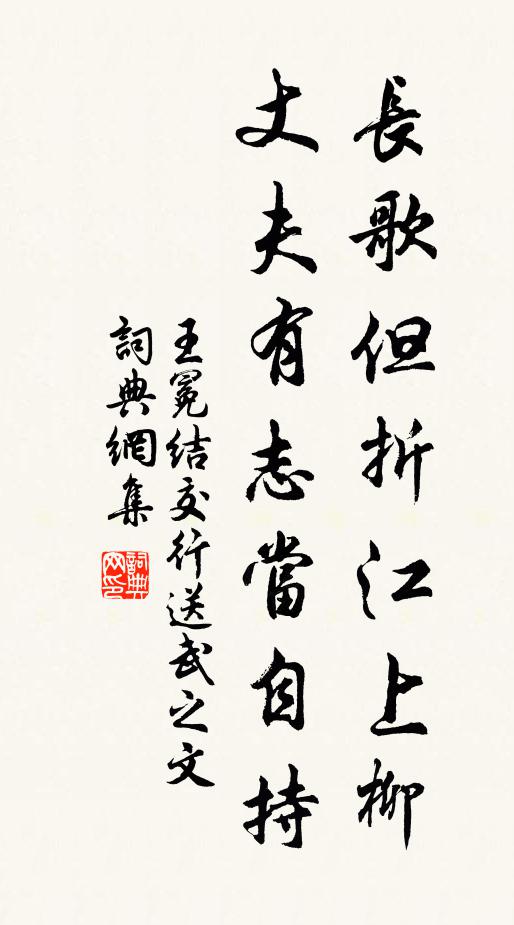 長歌但折江上柳
丈夫有志當自持
王冕結交行送武之文
詞典網集
詞典網印